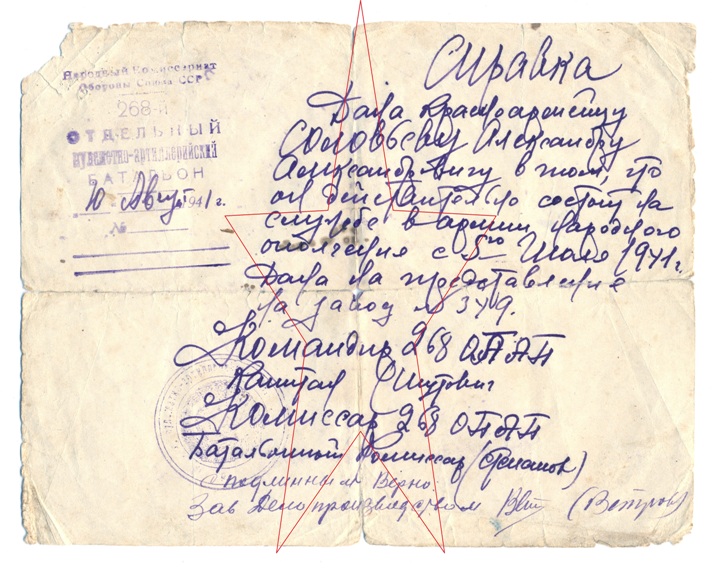 Народный Комиссариат
Обороны Союза ССР
268-й
ОТДЕЛЬНЫЙ
пулеметно-артиллерийский
БАТАЛЬОН
10 Август 1941 г.
№
Справка
Дана красноармейцу
Соловьеву Александру
Александровичу в том, что
он действительно состоит на
службе в армии народного
ополчения с 5го Июля 1941 г.
Дана на представление
на завод № 349.
Командир 268 ОПАП
Капитан
Комиссар 268 ОПАП
Батальонный Комиссар (Степанов)
подлинным Верно
Зав Делопроизводством (Ветров)